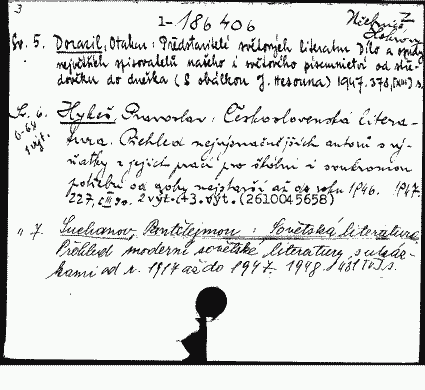 3
I-186406
Sv. 5. Dorazil, Otakar: Představitelé světových literatur. Dílo a
největších spisovatelů našeho i světového písemnictví od stře-
dověku do dneška (S obálkou J. Hesouna) 1947. 378, s.
Sv. 6. Hykeš, Pravoslav: Československá litera-
6-68 tura. Přehled nejvýznačnějších autorů s vý-
1 výt. ňatky z jejich prací pro školní i soukromou
potřebu od doby nejstarší až do roku 1946. 1947.
227, s. 2 výt. (+3. výt. (2610045658)
" 7. Suchanov, Pantělejmon: Sovětská literatura.
Přehled moderní sovětské literatury s ukáz-
kami od r. 1917 až do 1947. 1948 s.